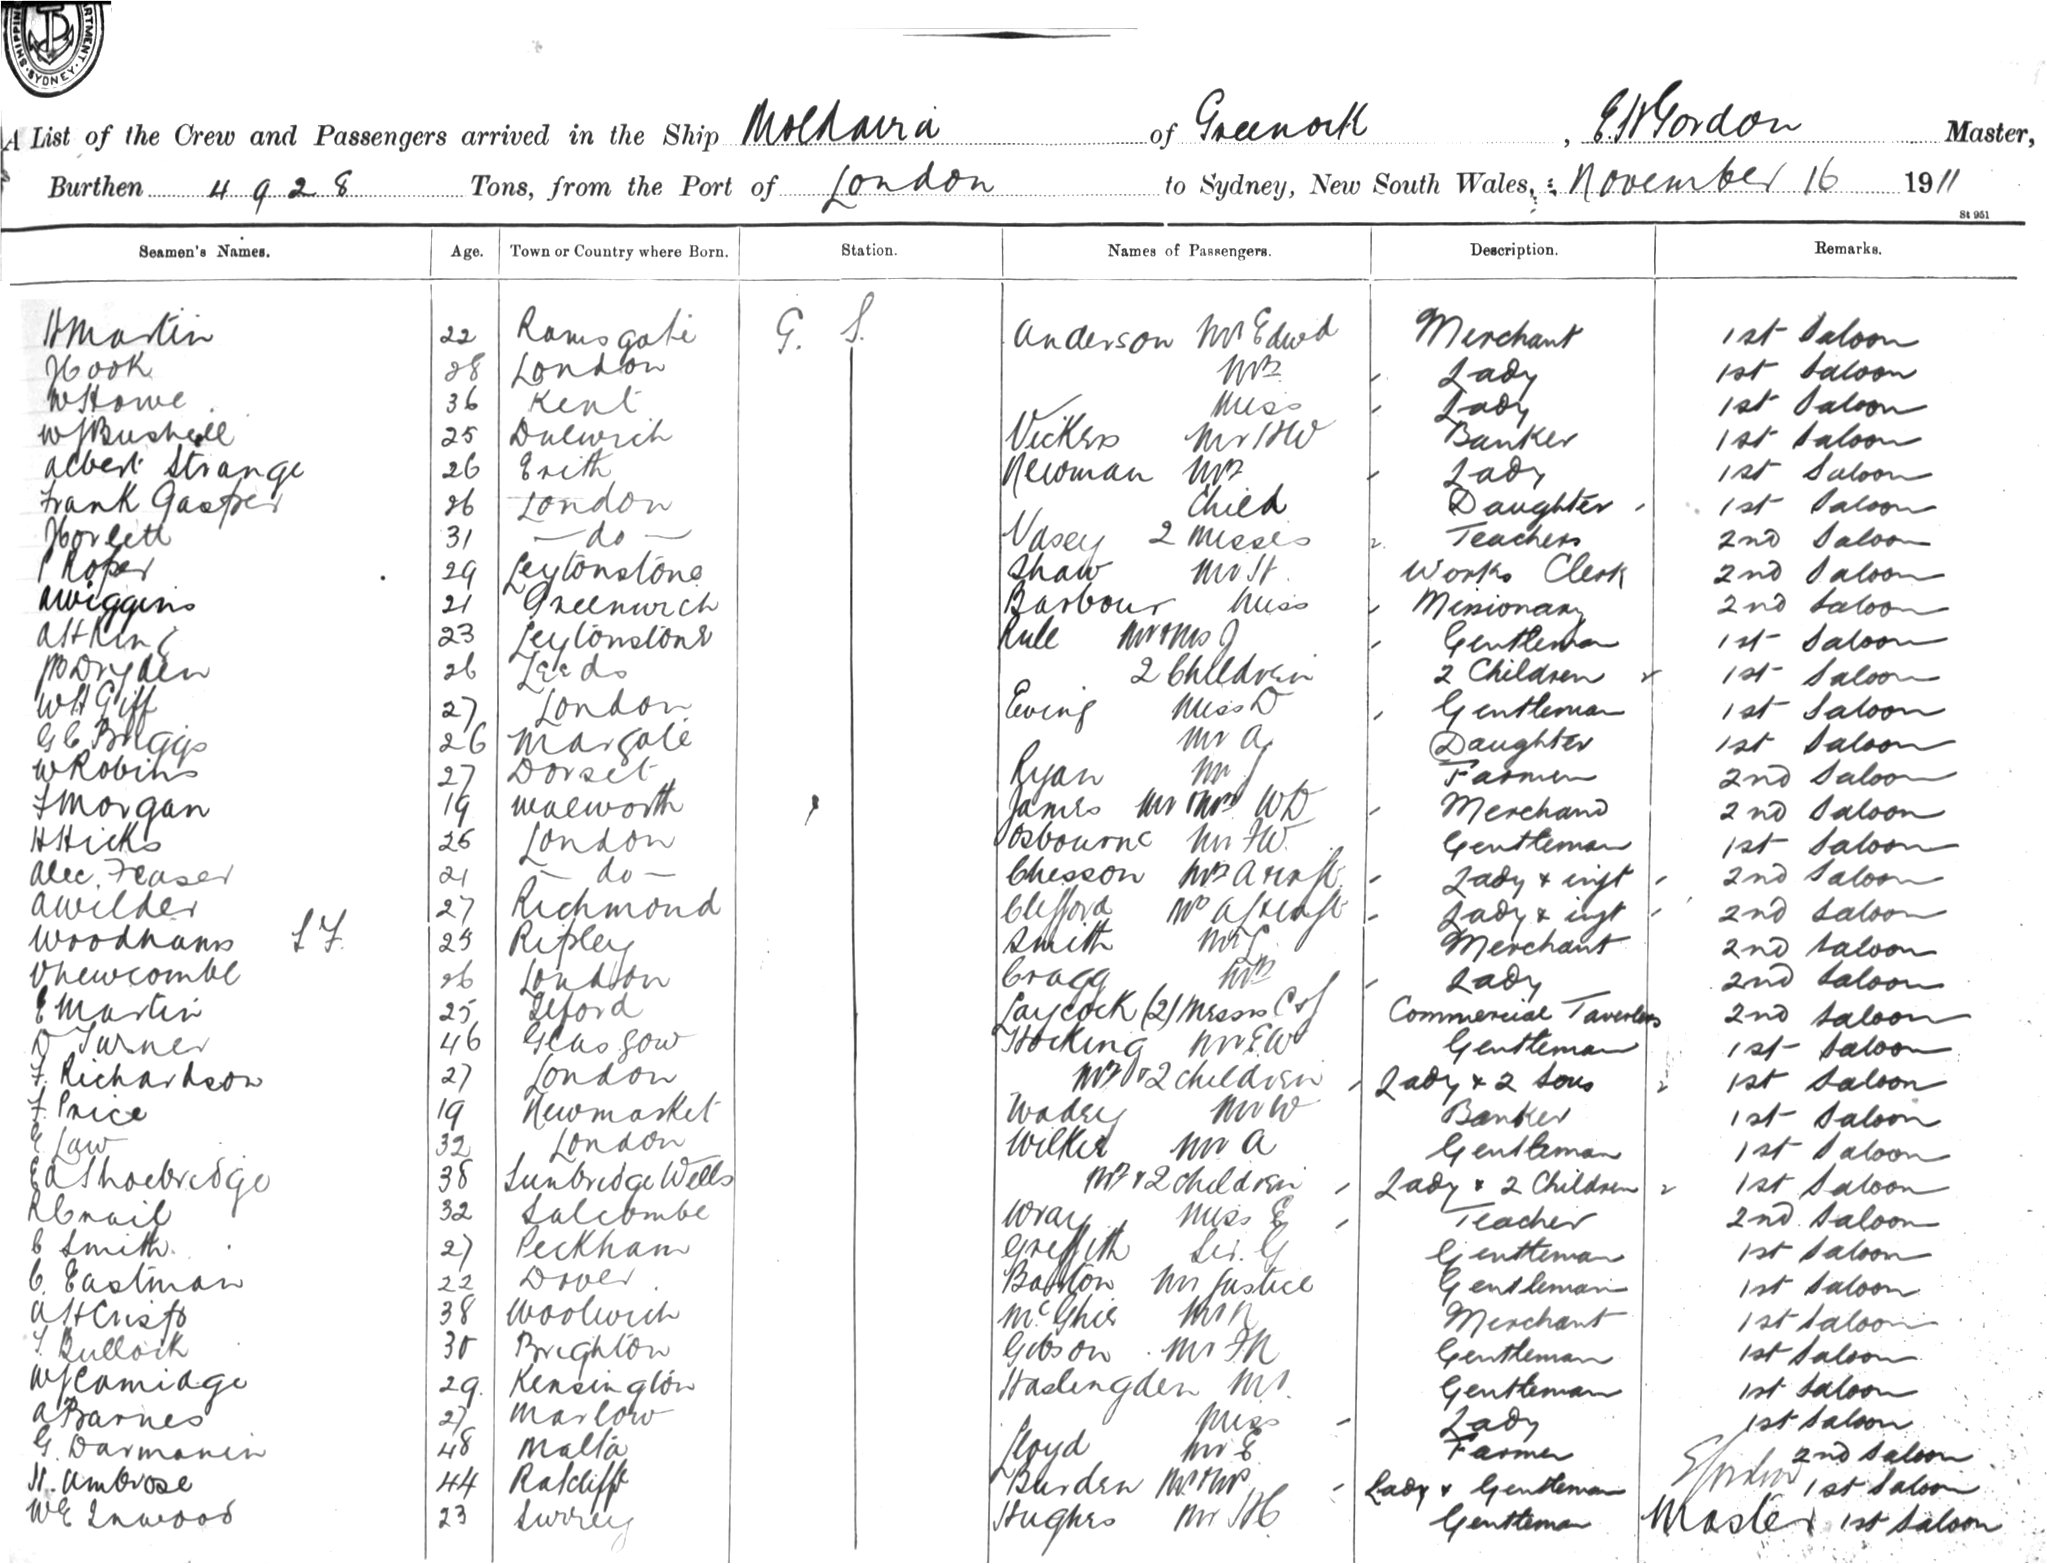 SHIPPING DEPARTMENT. SYDNEY
A List of the Crew and Passengers arrived in the Ship Moldavia of Greenock, E. H Gordon Master,
Burthen 4928 Tons, from the Port of London to Sydney, New South Wales, November 16 1911
St 951
Seamen's Names. Age. Town or Country where Born. Station. Names of Passengers. Description. Remarks.
H Martin 22 Ramsgate G. S. Anderson Mr Edwd Merchant 1st Saloon
Hook 28 London Mrs Lady 1st Saloon
W Howe 36 Kent Miss Lady 1st Saloon
W J Bushell 25 Dulwich Vickers Mr H W Banker 1st Saloon
Albert Strange 26 Erith Newman Mrs Lady 1st Saloon
Frank Gasper 26 London Child Daughter 1st Saloon
31 — do — Vasey 2 Misses Teachers 2nd Saloon
Roper 29 Leytonstone Shaw Mr H. Works Clerk 2nd Saloon
A Wiggins 21 Greenwich Barbour Miss Missionary 2nd Saloon
A H King 23 Leytonstone Rule Mr & Mrs J Gentleman 1st Saloon
Dryden 26 Leeds 2 Children 2 Children 1st Saloon
W H Giff 27 London Ewing Miss D Gentleman 1st Saloon
G C Briggs 26 Margate Mr A. Daughter 1st Saloon
W Robins 27 Dorset Ryan Mr J Farmer 2nd Saloon
F Morgan 19 Walworth James Mr & Mrs W D Merchand 2nd Saloon
H Hicks 25 London Osbourne Mr F W. Gentleman 1st Saloon
Alec. Fraser 21 — do — Chesson Mrs A & inft. Lady & inft 2nd Saloon
A Wilder 27 Richmond Clifford Mrs A J & inft Lady & inft 2nd Saloon
Woodhams S F. 25 Ripley Smith Mr J. Merchant 2nd Saloon
V Newcombe 26 London Cragg Mrs Lady 2nd Saloon
E Martin 25 Ilford Laycock (2) Messrs C & J Commercial Taverlers 2nd Saloon
D Turner 46 Glasgow Hocking Mr E W Gentleman 1st Saloon
F. Richardson 27 London Mrs & 2 children Lady & 2 Sons 1st Saloon
F. Price 19 Newmarket Wadey Mr W Banker 1st Saloon
E Law 32 London Wilkie Mr A Gentleman 1st Saloon
E A Shoebridge 38 Tunbridge Wells Mrs & 2 children Lady & 2 Children 1st Saloon
R Cnail 32 Salcombe Wray Miss E Teacher 2nd Saloon
C Smith. 27 Peckham Griffith Sir. G Gentleman 1st Saloon
C. Eastman 22 Dover. Barton Mr Justice Gentleman 1st Saloon
A H Crisp 38 Woolwich McGhie Mr R Merchant 1st Saloon
T. Bullock 30 Brighton Gibson Mr F R Gentleman 1st Saloon
W J Camidge 29. Kensington Haslingden Mr. Gentleman 1st Saloon
A Barnes 27 Marlow Miss Lady 1st Saloon
G. Darmanin 48 Malta Lloyd Mr E Farmer 2nd Saloon
H. Ambrose 44 Ratcliffe Burden Mr & Mrs Lady & Gentleman Gordon 1st Saloon
W E Inwood 23 Surrey Hughes Mr H C Gentleman Master 1st Saloon